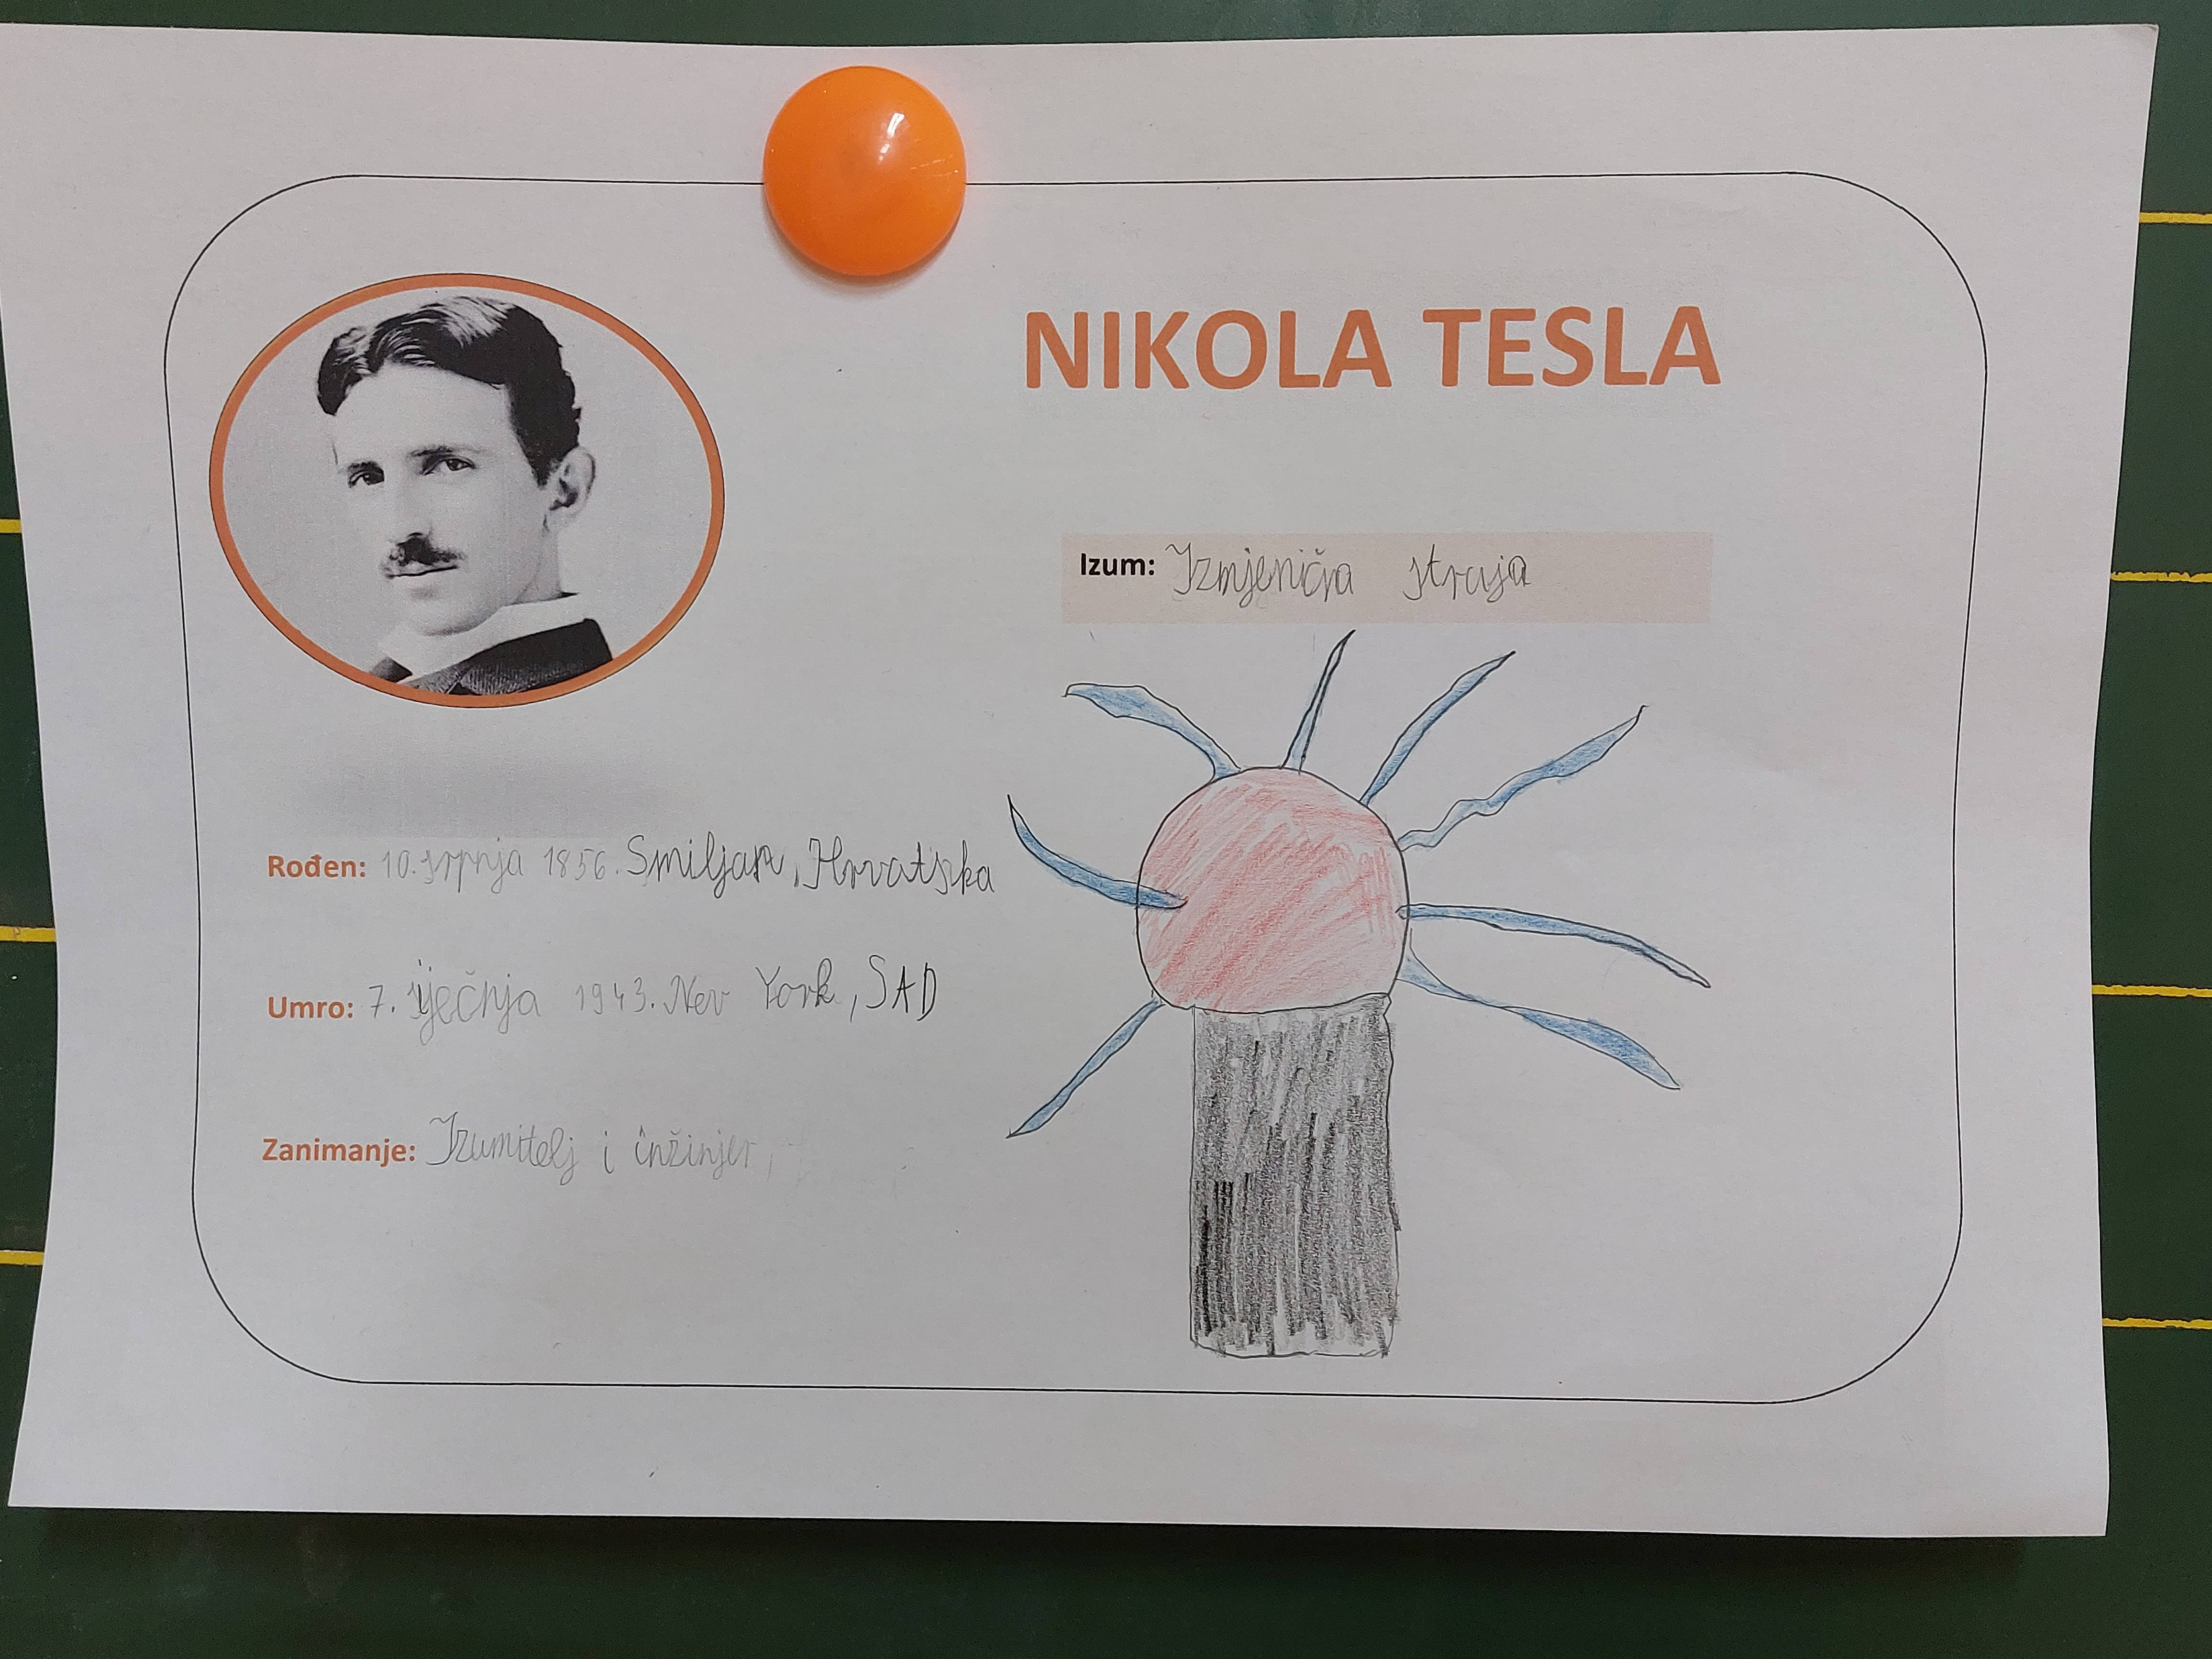 NIKOLA TESLA
Izum: Izmjenična struja
Rođen: 10. srpnja 1856. Smiljan, Hrvatska
Umro: 7. siječnja 1943. Nev York, SAD
Zanimanje: Izumitelj i inžinjer,